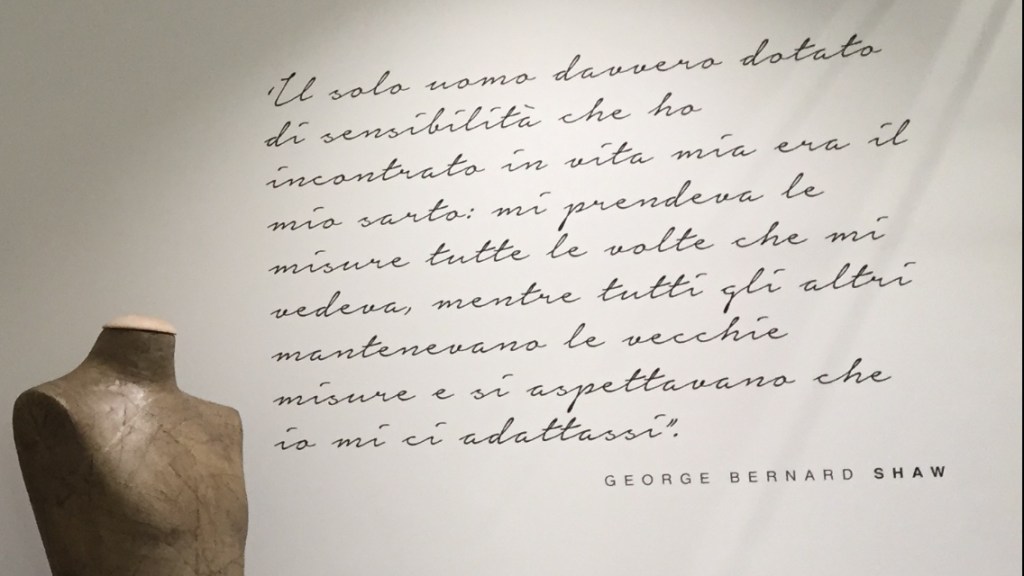 "Il solo uomo davvero dotato
di sensibilità che ho
incontrato in vita mia era il
mio sarto: mi prendeva le
misure tutte le volte che mi
vedeva, mentre tutti gli altri
mantenevano le vecchie
misure e si aspettavano che
io mi ci adattassi".
GEORGE BERNARD SHAW